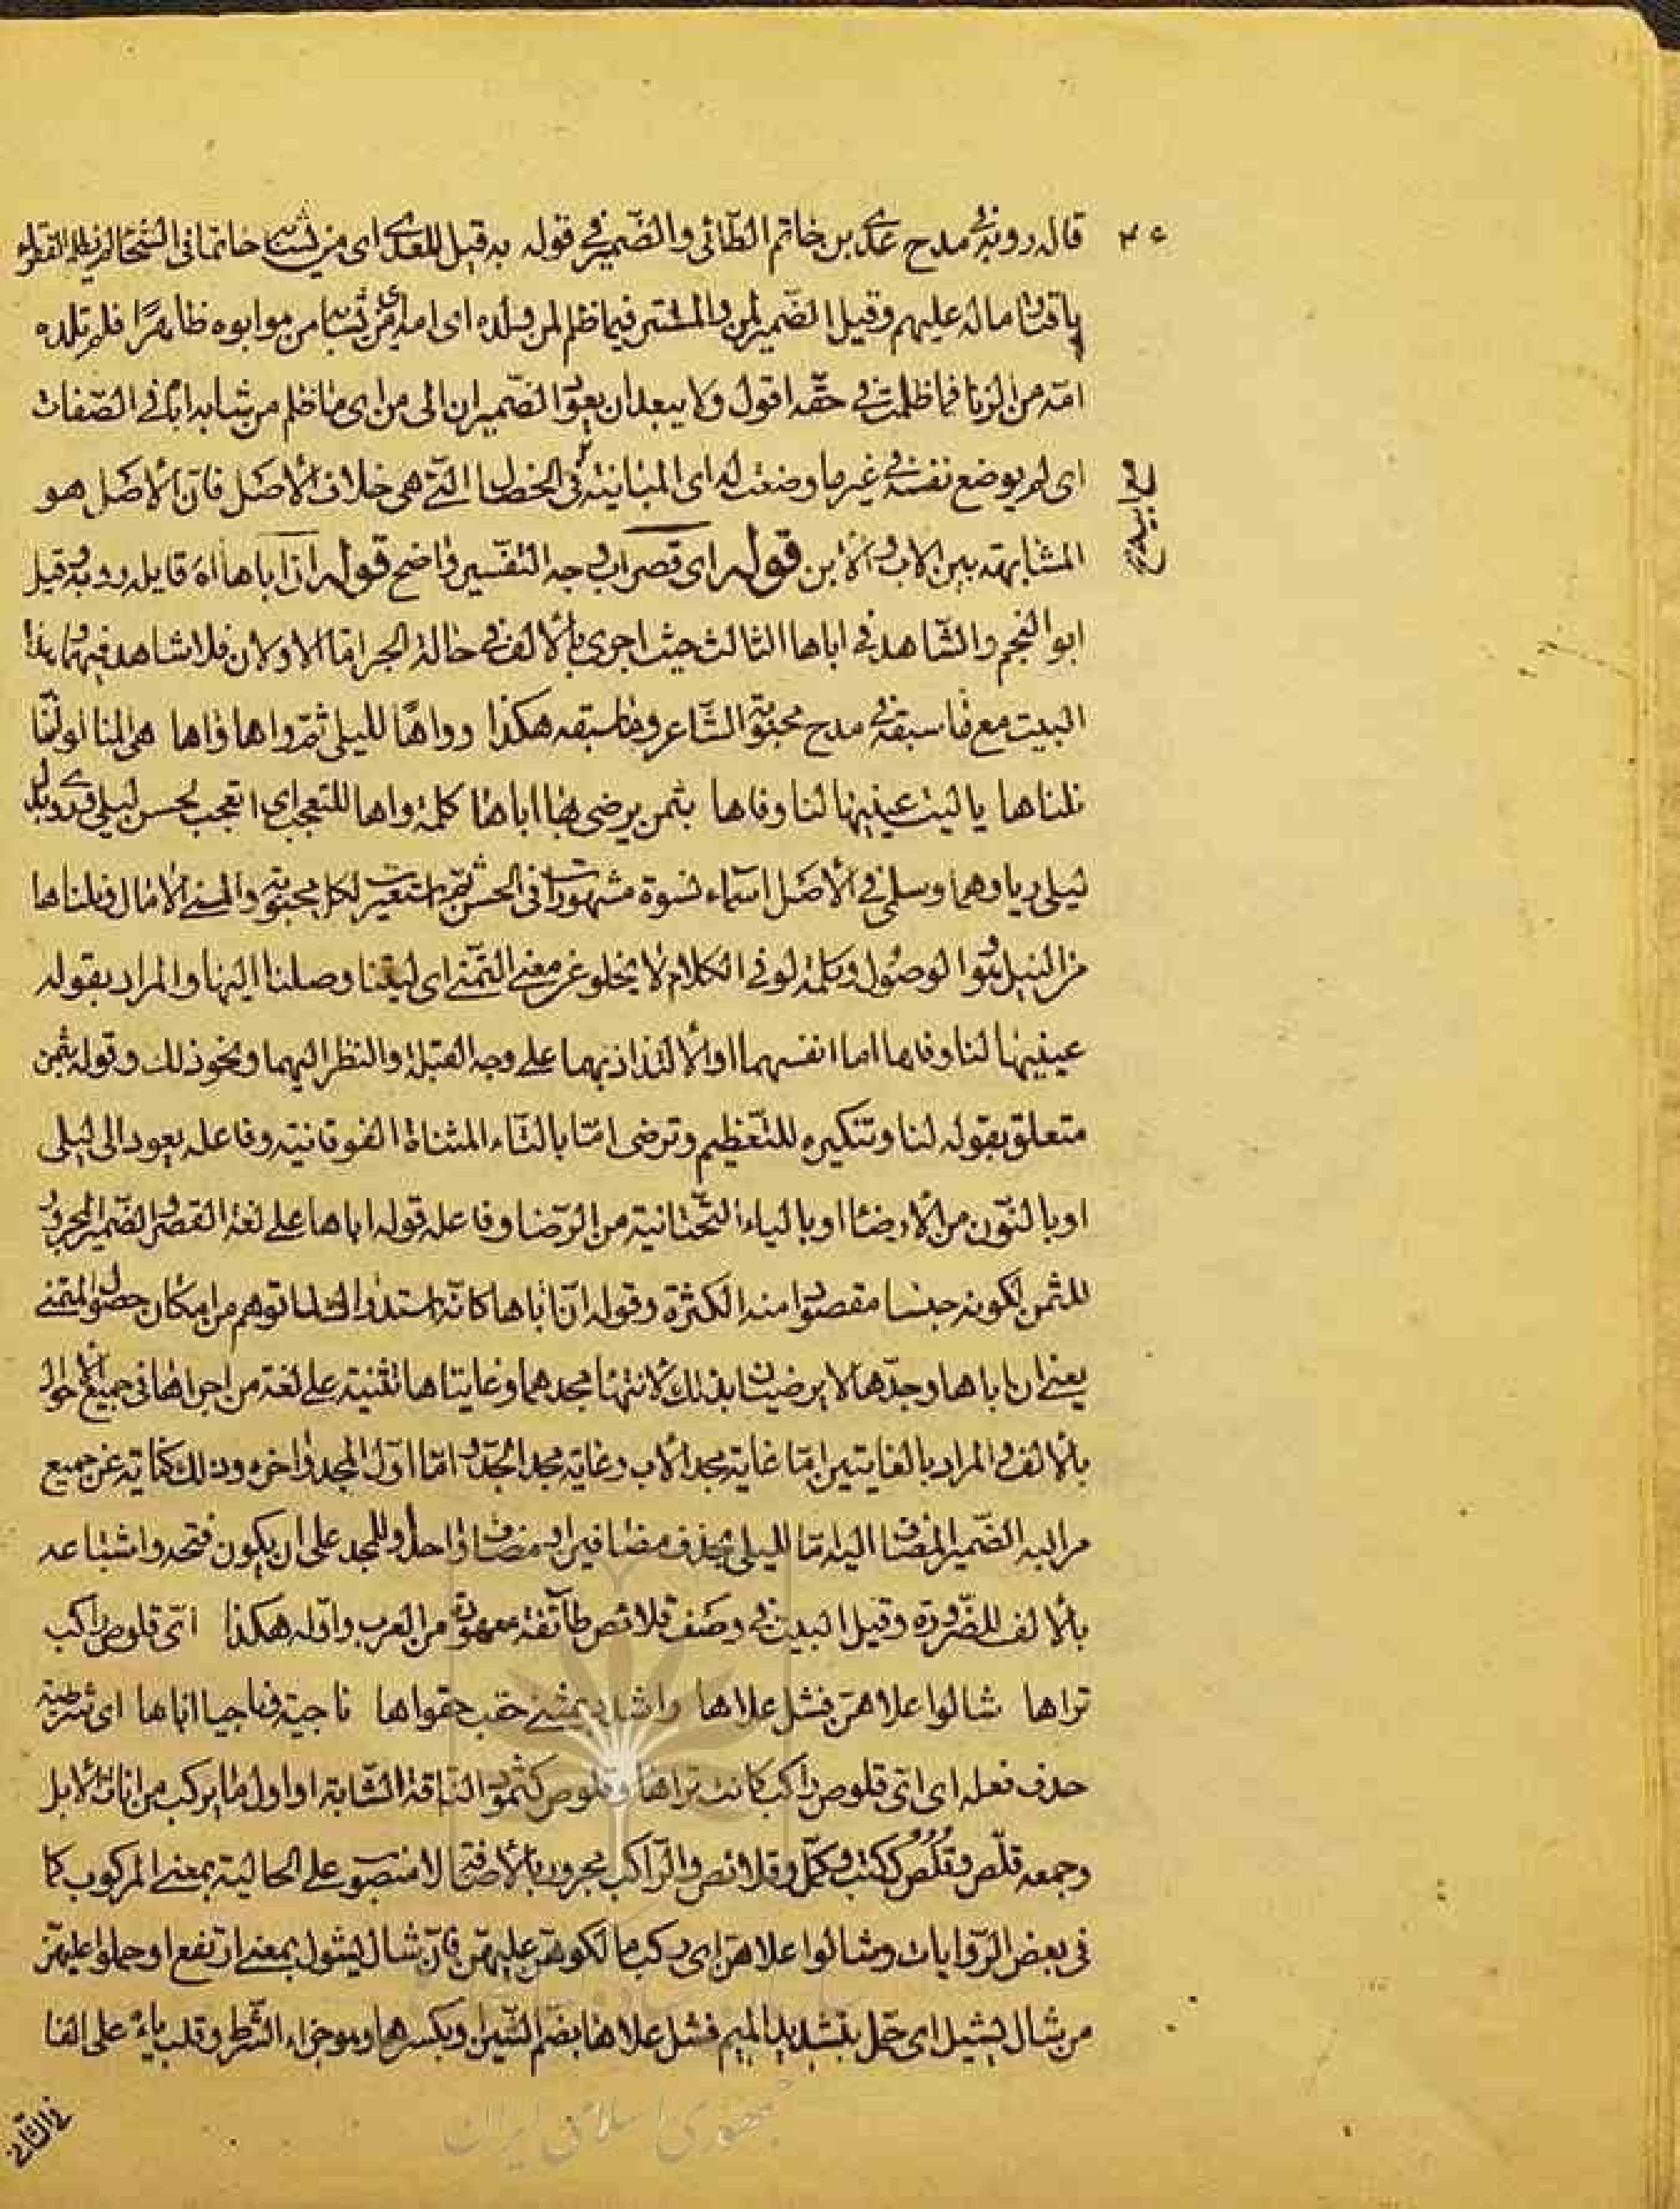 قاله روبة فى مدح عدى بن حاتم الطائى والضمير فى قوله به قيل للعدى اى من يشابه حاتما فى السخا لم يظلم الفقراء
باقتار ماله عليهم وقيل الضمير لمن والمستتر فيما ظلم لمن ولده اى امه اى من يشابه من هو ابوه ظاهرا فلم تلده
امه من الزنا فما ظلمت فى حقه اقول ولا يبعد ان يعود الضميران الى من اى ما ظلم من شابه اباه فى الصفات
اى لم يوضع نفسه فى غير ما وضعت له اى المباينة فى الخصال التى هى خلاف الاصل فان الاصل هو
المشابهة بين الاب والابن قوله اى قصر اب وجه التفسير واضح قوله ان اباها اه قايله روبة وقيل
ابو النجم والشاهد فى اباها الثالث حيث اجرى بالالف فى حالة الجر اما الاولان فلا شاهد فيهما وهذا
البيت مع ما سبقه فى مدح محبوبة الشاعر وما سبقه هكذا وواها لليلى ثم واها واها هى المنا لو اننا
نلناها يا ليت عينيها لنا وفاها بثمن يرضى به اباها كلمة واها للتعجب اى اتعجب لحسن ليلى وقد يروى بدل
ليلى ريا وهما وسلمى فى الاصل اسماء نسوة مشهورات فى الحسن ثم استعير لكل محبوبة والمنى الامال ونلناها
من النيل وهو الوصول وكلمة لو فى الكلام لا يخلو عن معنى التمنى اى ليتنا وصلنا اليها والمراد بقوله
عينيها لنا وفاها اما انفسهما او الالتذاذ بهما على وجه القبلة والنظر اليهما ونحو ذلك وقوله بثمن
متعلق بقوله لنا وتنكيره للتعظيم وترضى اما بالتاء المثناة الفوقانية وفاعله يعود الى ليلى
او بالنون من الارضاء او بالياء التحتانية من الرضا وفاعله قوله اباها على لغة القصر والضمير المجرور
للثمن لكونه جنسا مقصودا منه الكثرة وقوله ان اباها كانه استدراك لما توهم من امكان حصول المتمنى
يعنى ان اباها وجدها لا يرضيان بذلك لانتهاء مجدهما وغايتاها تثنية على لغة من اجراها فى جميع الاحوال
بالالف والمراد بالغايتين اما غاية مجد الاب وغاية مجد الجد او اما اول المجد واخره وذلك كناية عن جميع
مراتبه الضمير المضاف اليه اما لليلى بحذف مضافين او مضاف واحد او للمجد على ان يكون فتحه واشباعه
بالالف للضرورة وقيل البيت فى وصف قلائص طائفة من العرب واوله هكذا اى قلوص راكب
تراها شالوا علاهن فشل علاها واشدد بمثنى حقب حقواها ناجية وناجيا اباها اى شرطية
حذف فعله اى اى قلوص راكب كانت تراها وقلوص كثمود الناقة الشابة او اول ما يركب من اناث الابل
وجمعه قلص وقلص ككتب وكمل وقلائص والراكب مجرور بالاضافة لا منصوب على الحالية بمعنى المركوب كما
فى بعض الروايات وشالوا علاهن اى ركب مالكوهن عليهن فان شال يشول بمعنى ارتفع او حملوا عليهن
من شال يشيل اى حمل بتشديد الميم فشل علاها بضم الشين وبكسرها وهو جزاء الشرط وقلب ياء على الفا
فى الثانى
مع ابيه
جمهوری اسلامی ایران